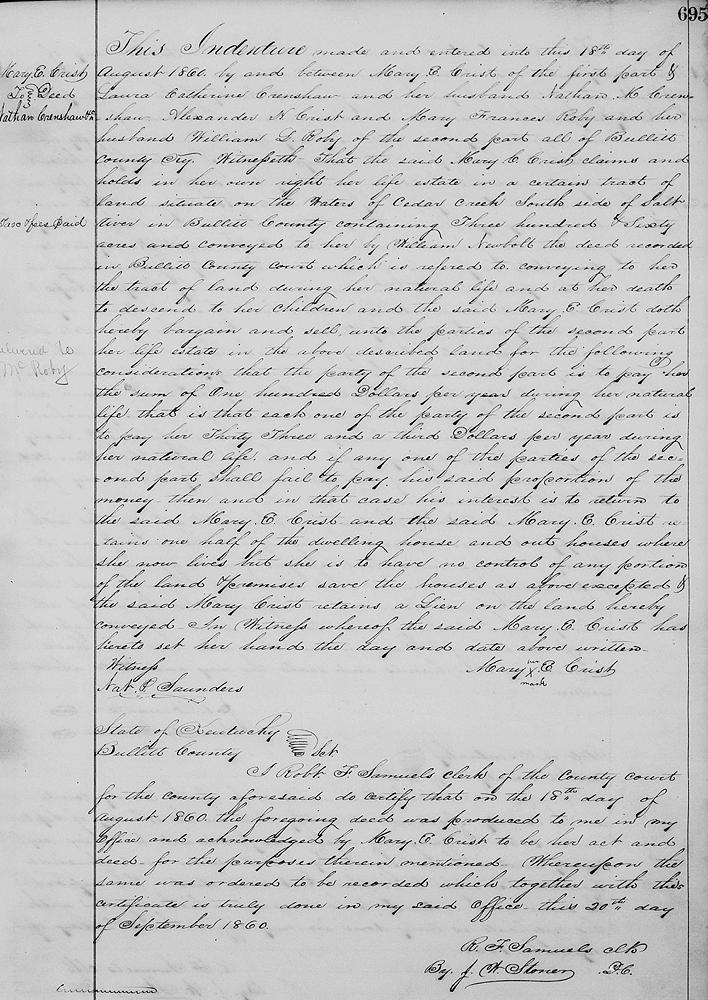 695
Mary. E. Crist
To } Deed
Nathan Crenshaw &c
Tax & fees Paid
Delivered to
Mc Roby
This Indenture made and entered into this 18th day of
August 1860. by and between Mary. E. Crist of the first part &
Laura Catherine Crenshaw and her husband Nathan. M. Cren-
shaw. Alexander H Crist and Mary Frances Roby and her
husband William L. Roby of the second part all of Bullitt
County Ky. Witnesseth That the said Mary E Crist claims and
holds in her own right her life estate in a certain tract of
land situate on the Waters of Cedar Creek South side of Salt
River in Bullitt County containing Three hundred & Sixty
acres and conveyed to her by William Newbolt the deed recorded
in Bullitt County Court which is refered to. conveying to her
the tract of land during her natural life and at her death
to descend to her children and the said Mary. E Crist doth
hereby bargain and sell, unto the parties of the second part
her life estate in the above described land for the following
considerations that the party of the second part is to pay her
the sum of One hundred Dollars per year during her natural
life. that is that each one of the party of the second part is
to pay her Thirty Three and a third Dollars per year during
her natural life. and if any one of the parties of the sec-
-ond part shall fail to pay his said proportion of the
money then and in that case his interest is to return to
the said Mary. E. Crist and the said Mary. E. Crist re
-tains one half of the dwelling house and out houses where
she now lives but she is to have no control of any portion
of the land & premises save the houses as above excepted &
the said Mary Crist retains a Lien on the land hereby
conveyed. In Witness whereof the said Mary. E. Crist has
hereto set her hand the day and date above written.
Witness
Mary her X mark E. Crist
Nat. P. Saunders
State of Kentucky
Bullitt County } Sct.
I Robt F Samuels clerk of the County court
for the county aforesaid do certify that on the 18th day of
August 1860. the foregoing deed was produced to me in my
Office and acknowledged by Mary. E. Crist to be her act and
deed for the purposes therein mentioned. Whereupon the
same was ordered to be recorded which together with this
certificate is truly done in my said Office this 20th day
of September 1860.
R. F. Samuels clk
By. J. W. Stoner D.C.